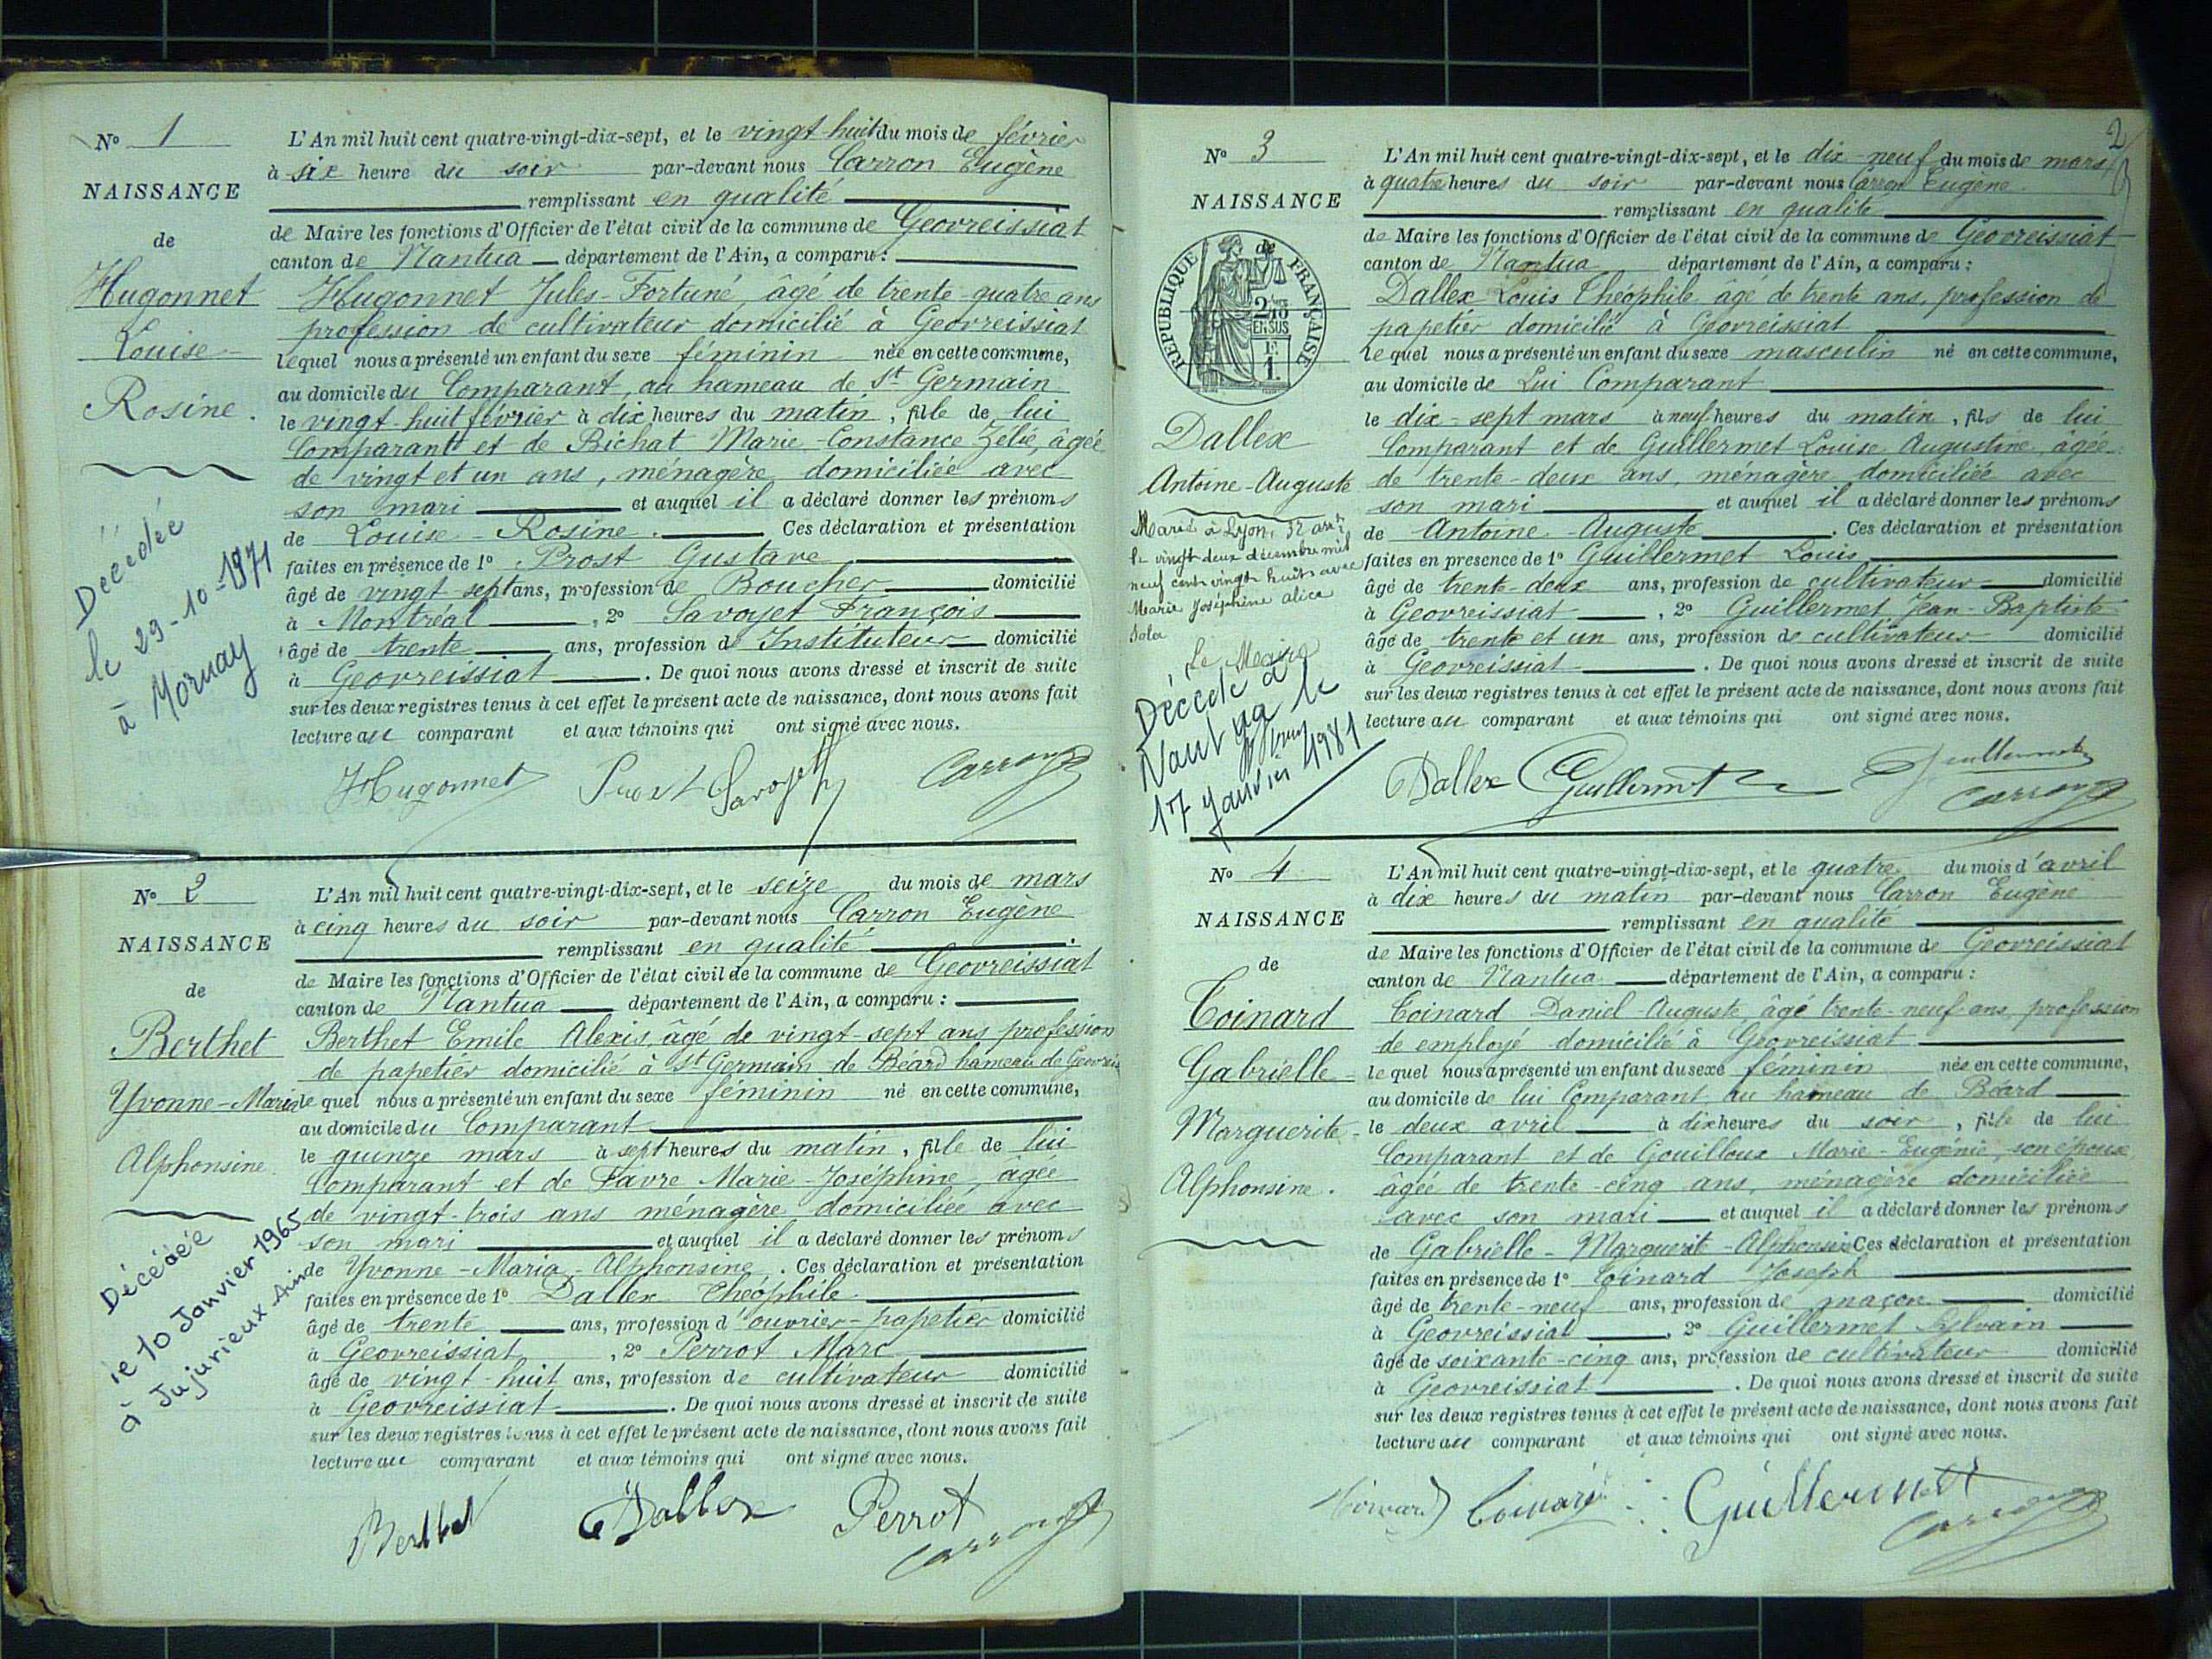 N° 1
NAISSANCE
de
Hugonnet
Louise-
Rosine.
Décédée
le 29-10-1971
à Mornay
L'An mil huit cent quatre-vingt-dix-sept, et le vingt-huit du mois de février
à six heure du soir par-devant nous Carron Eugène
remplissant en qualité
de Maire les fonctions d'Officier de l'état civil de la commune de Geovreissiat
canton de Nantua département de l'Ain, a comparu :
Hugonnet Jules-Fortuné, âgé de trente-quatre ans
profession de cultivateur domicilié à Geovreissiat
lequel nous a présenté un enfant du sexe féminin née en cette commune,
au domicile du Comparant, au hameau de St Germain
le vingt-huit février à dix heures du matin, fille de lui
Comparant et de Bichat Marie-Constance Zélie, âgée
de vingt et un ans, ménagère domiciliée avec
son mari et auquel il a déclaré donner les prénoms
de Louise-Rosine. Ces déclaration et présentation
faites en présence de 1° Prost Gustave
âgé de vingt sept ans, profession de Boucher domicilié
à Montréal, 2° Savoyet François
âgé de trente ans, profession d'Instituteur domicilié
à Geovreissiat. De quoi nous avons dressé et inscrit de suite
sur les deux registres tenus à cet effet le présent acte de naissance, dont nous avons fait
lecture au comparant et aux témoins qui ont signé avec nous.
Hugonnet Prost Savoyet Carron
N° 2
NAISSANCE
de
Berthet
Yvonne-Maria
Alphonsine
Décédée
le 10 Janvier 1965
à Jujurieux-Ain
L'An mil huit cent quatre-vingt-dix-sept, et le seize du mois de mars
à cinq heures du soir par-devant nous Carron Eugène
remplissant en qualité
de Maire les fonctions d'Officier de l'état civil de la commune de Geovreissiat
canton de Nantua département de l'Ain, a comparu :
Berthet Emile Alexis, âgé de vingt-sept ans profession
de papetier domicilié à St Germain de Béard hameau de Geovreis
le quel nous a présenté un enfant du sexe féminin né en cette commune,
au domicile du Comparant
le quinze mars à sept heures du matin, fille de lui
Comparant et de Favre Marie-Joséphine, âgée
de vingt-trois ans ménagère domiciliée avec
son mari et auquel il a déclaré donner les prénoms
de Yvonne-Maria-Alphonsine. Ces déclaration et présentation
faites en présence de 1° Dallex Théophile
âgé de trente ans, profession d'ouvrier-papetier domicilié
à Geovreissiat, 2° Perrot Marc
âgé de vingt-huit ans, profession de cultivateur domicilié
à Geovreissiat. De quoi nous avons dressé et inscrit de suite
sur les deux registres tenus à cet effet le présent acte de naissance, dont nous avons fait
lecture au comparant et aux témoins qui ont signé avec nous.
Berthet Dallex Perrot
Carron
2
N° 3
NAISSANCE
de
RÉPUBLIQUE FRANÇAISE
2/10
EN SUS
1.
Dallex
Antoine-Auguste
Marié à Lyon,
le vingt deux décembre mil
neuf cent vingt huit avec
Marie Joséphine Alice
Le Maire
Décédé à
Nantua le
17 Janvier 1981
L'An mil huit cent quatre-vingt-dix-sept, et le dix-neuf du mois de mars
à quatre heures du soir par-devant nous Carron Eugène
remplissant en qualité
de Maire les fonctions d'Officier de l'état civil de la commune de Geovreissiat
canton de Nantua département de l'Ain, a comparu :
Dallex Louis Théophile âgé de trente ans, profession de
papetier domicilié à Geovreissiat
le quel nous a présenté un enfant du sexe masculin né en cette commune,
au domicile de Lui Comparant
le dix-sept mars à neuf heures du matin, fils de lui
Comparant et de Guillermet Louise Augustine, âgée
de trente-deux ans, ménagère domiciliée avec
son mari et auquel il a déclaré donner les prénoms
de Antoine-Auguste. Ces déclaration et présentation
faites en presence de 1° Guillermet Louis
âgé de trente-deux ans, profession de cultivateur domicilié
à Geovreissiat, 2° Guillermet Jean-Baptiste
âgé de trente et un ans, profession de cultivateur domicilié
à Geovreissiat. De quoi nous avons dressé et inscrit de suite
sur les deux registres tenus à cet effet le présent acte de naissance, dont nous avons fait
lecture au comparant et aux témoins qui ont signé avec nous.
Dallex Guillermet Guillermet
Carron
N° 4
NAISSANCE
de
Coinard
Gabrielle-
Marguerite-
Alphonsine.
L'An mil huit cent quatre-vingt-dix-sept, et le quatre du mois d'avril
à dix heures du matin par-devant nous Carron Eugène
remplissant en qualité
de Maire les fonctions d'Officier de l'état civil de la commune de Geovreissiat
canton de Nantua département de l'Ain, a comparu :
Coinard Daniel-Auguste, âgé trente-neuf ans, profession
de employé domicilié à Geovreissiat
le quel nous a présenté un enfant du sexe féminin née en cette commune,
au domicile de lui Comparant, au hameau de Béard
le deux avril à dix heures du soir, fille de lui
Comparant et de Gouilloux Marie-Eugénie, son épouse
âgée de trente-cinq ans, ménagère domiciliée
avec son mari et auquel il a déclaré donner les prénoms
de Gabrielle-Marguerite-Alphonsine Ces déclaration et présentation
faites en présence de 1° Coinard Joseph
âgé de trente-neuf ans, profession de maçon domicilié
à Geovreissiat, 2° Guillermet Sylvain
âgé de soixante-cinq ans, profession de cultivateur domicilié
à Geovreissiat. De quoi nous avons dressé et inscrit de suite
sur les deux registres tenus à cet effet le présent acte de naissance, dont nous avons fait
lecture au comparant et aux témoins qui ont signé avec nous.
Coinard Coinard Guillermet
Carron